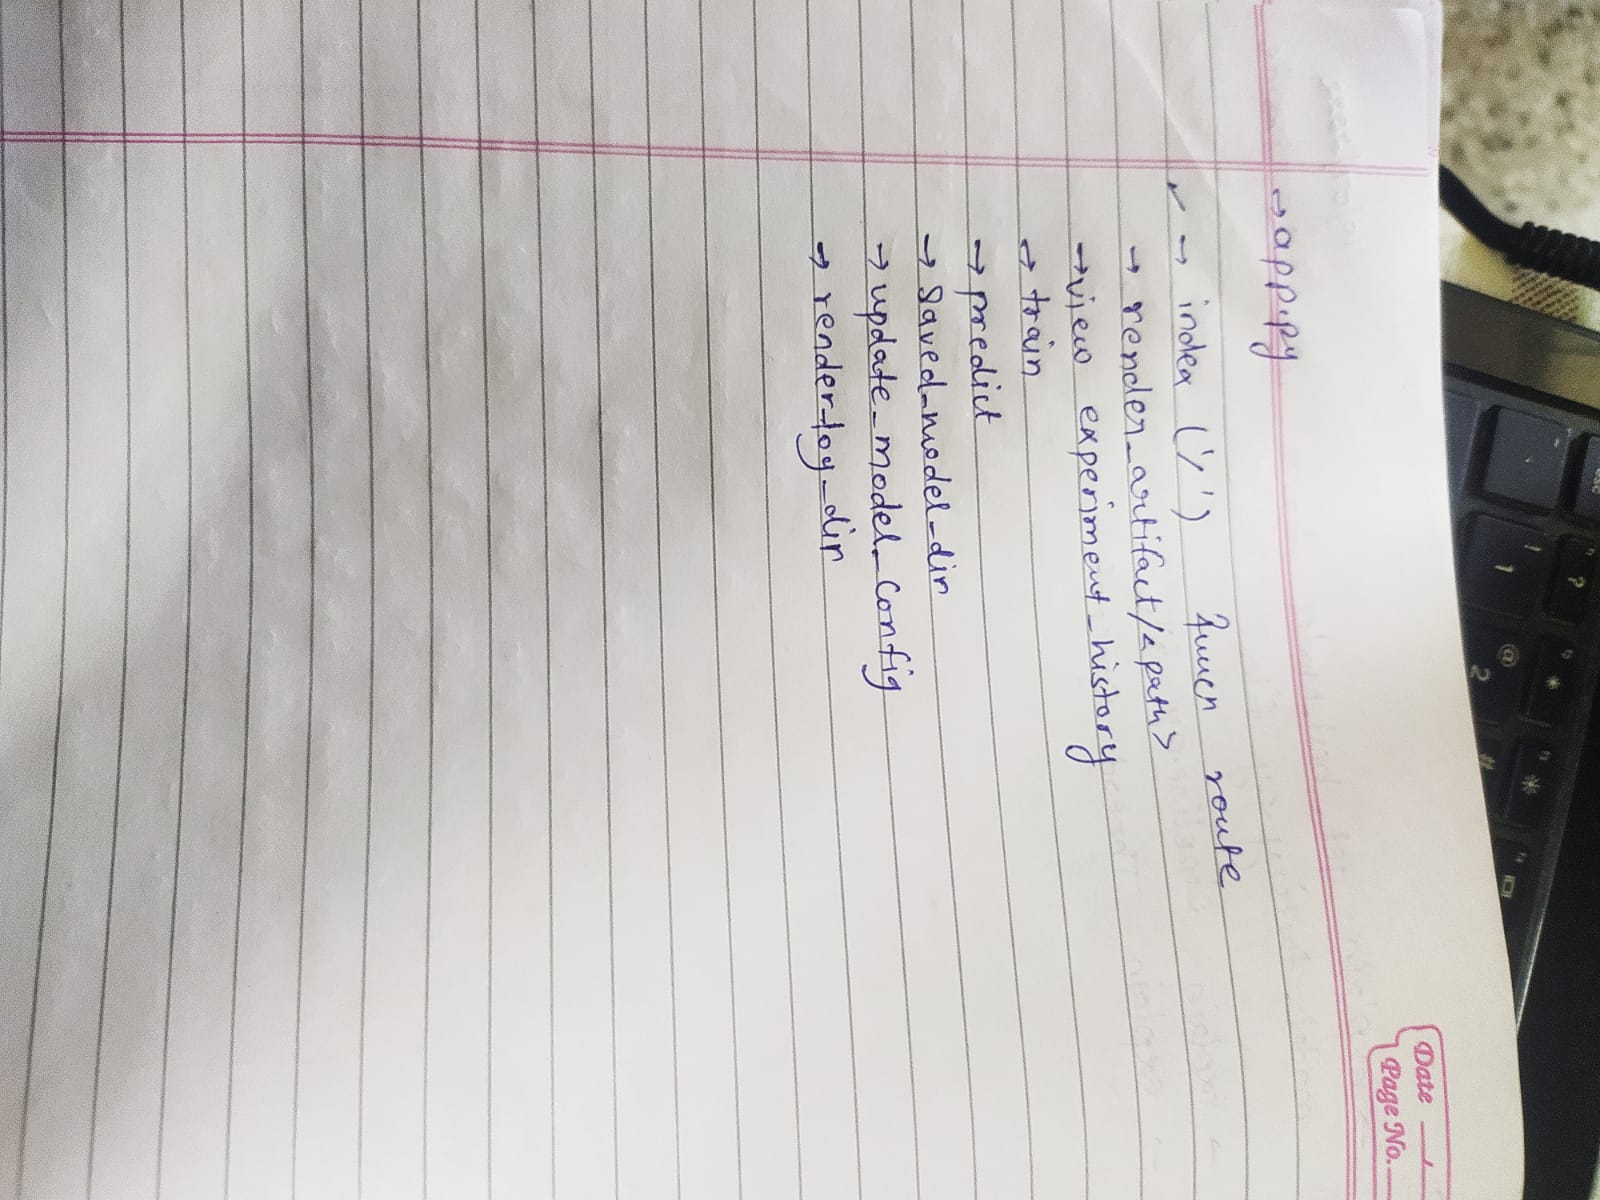 esc ? * *
! 1 @ 2 #
Date
Page No.
→ app.py
✓ → index ('/') route
→ render_artifact/<path>
→ view experiment_history
→ train
→ predict
→ saved_model_dir
→ update_model_config
→ render_log_dir